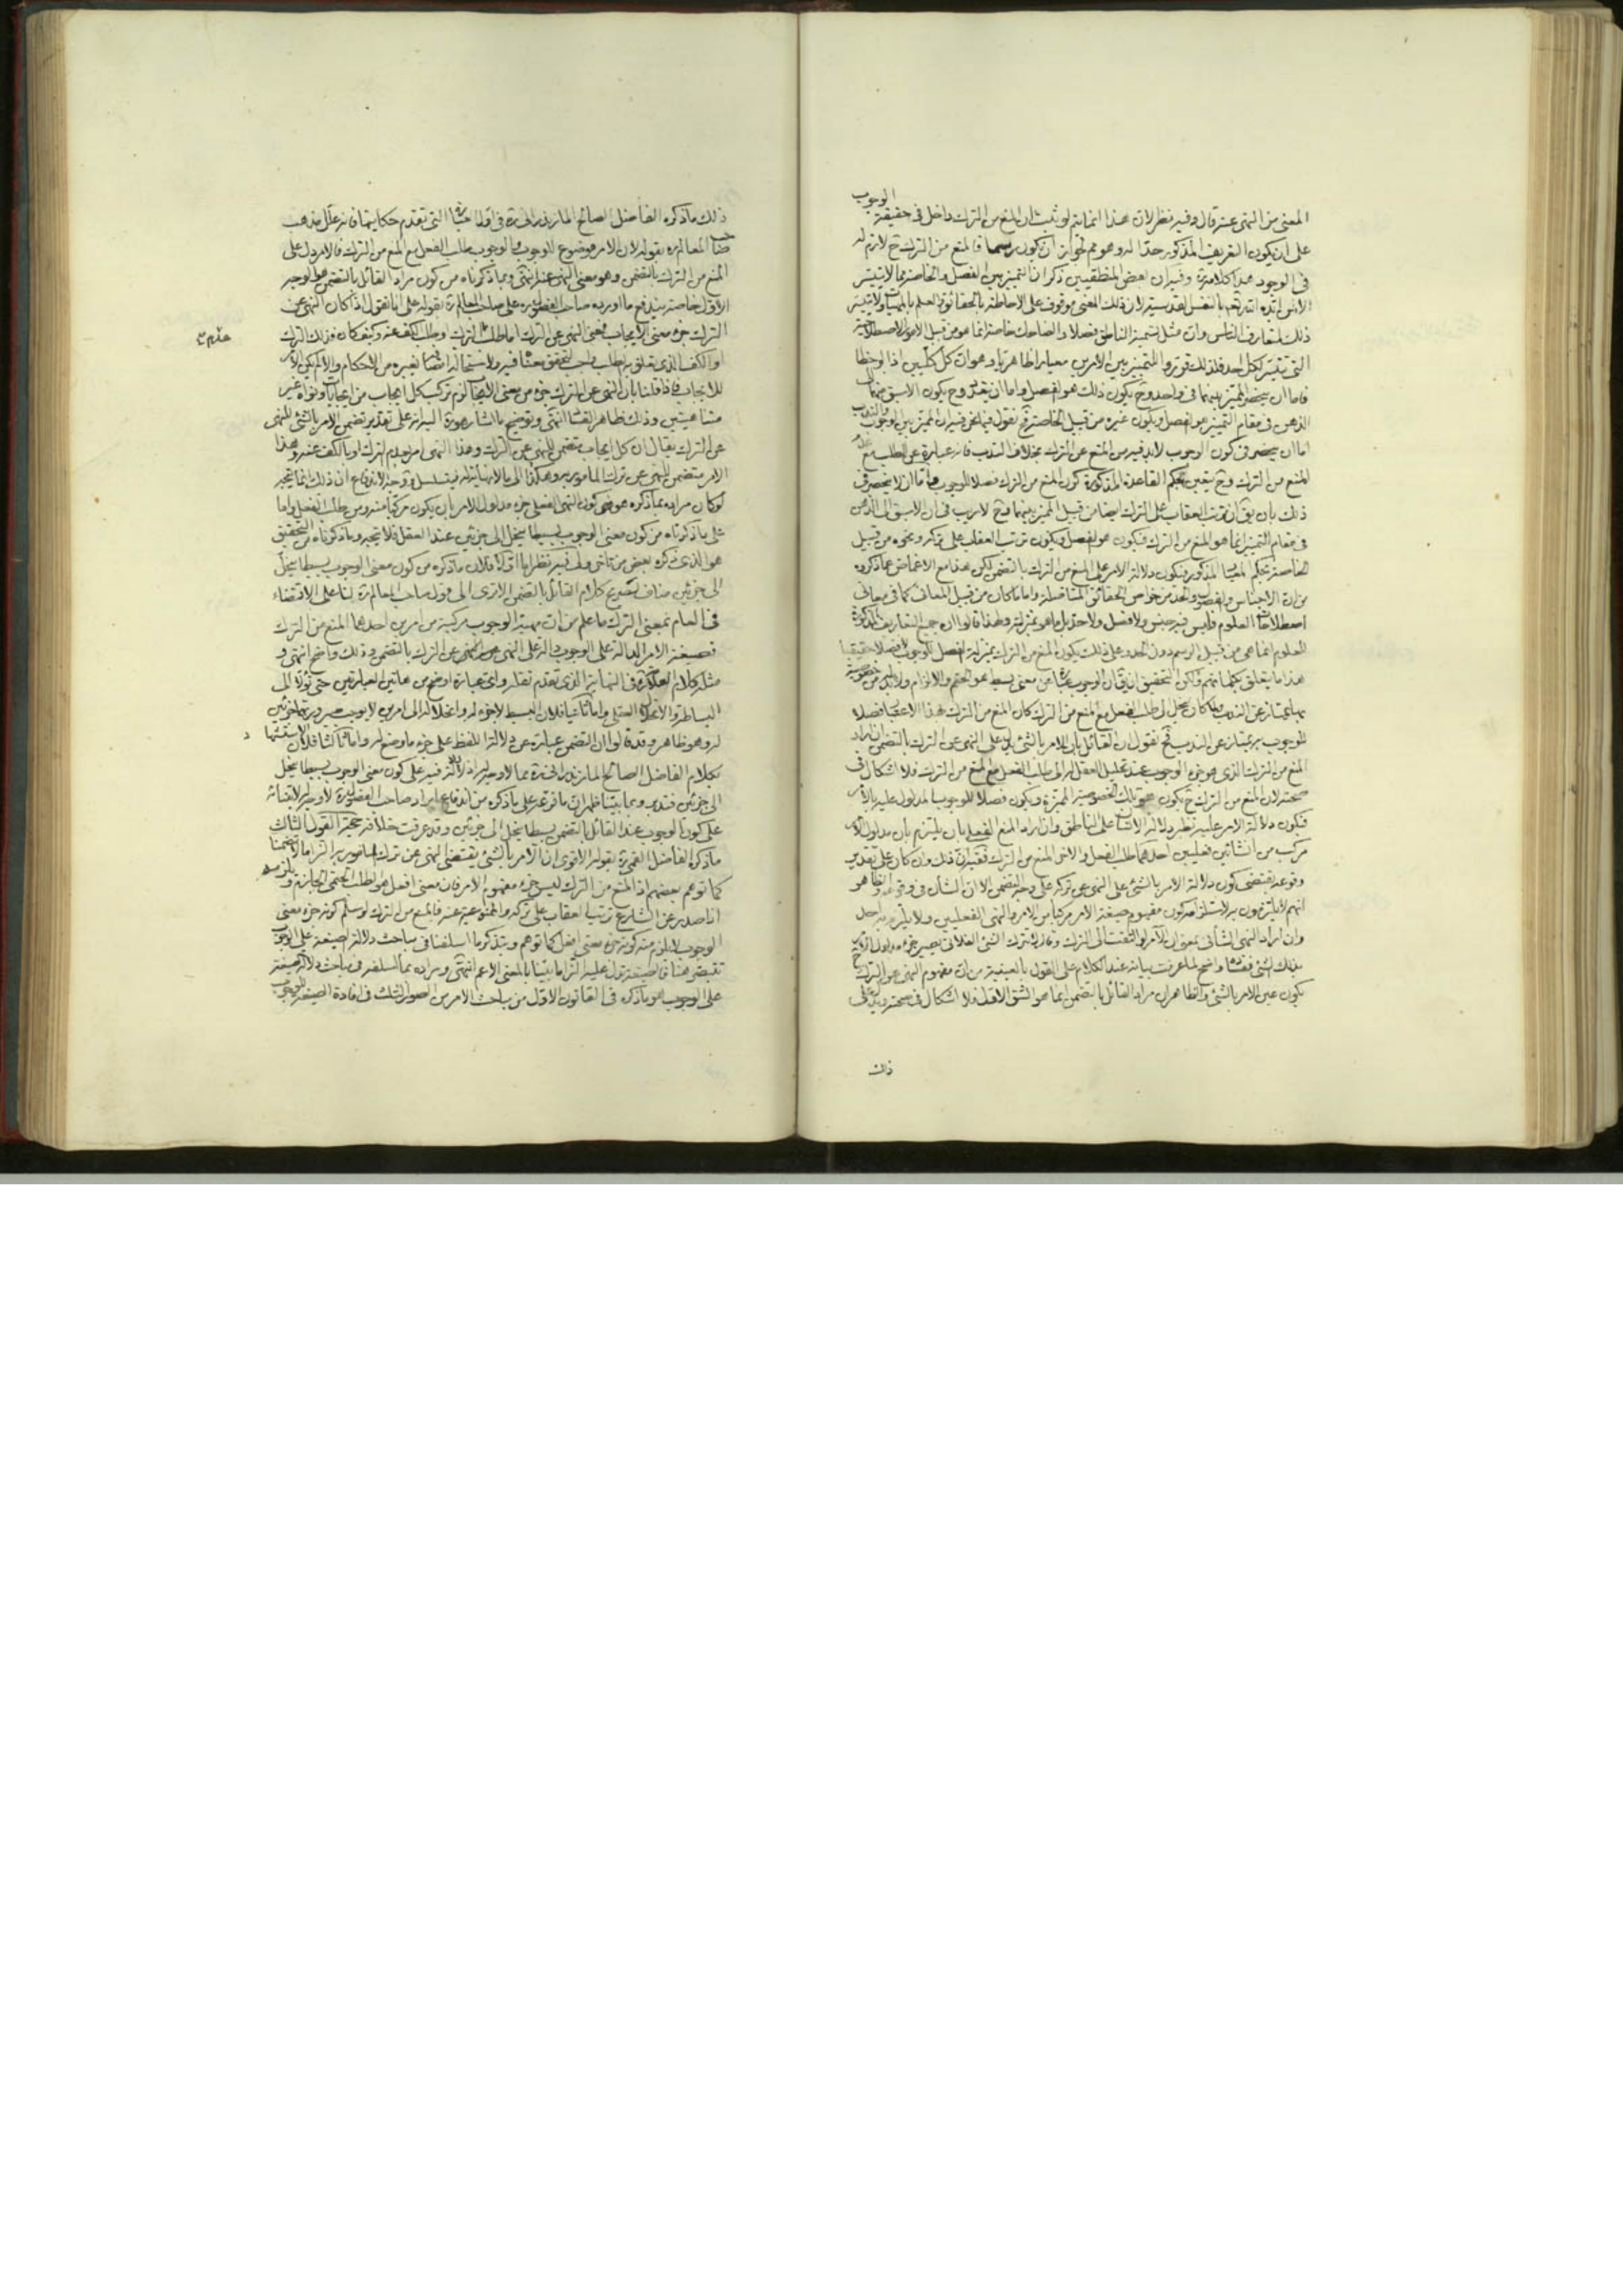 المعنى من النهى عنه قال وفيه نظر لان هذا انما يتم لو ثبت ان المنع من الترك داخل فى حقيقة الوجوب
على ان يكون التعريف المذكور حدّا له وهو مم لجواز ان يكون رسما فالمنع من الترك ح لازم له
فى الوجود هذا كلامه ره وفيه ان بعض المنطقيين ذكر ان التميز بين الفصل والخاصة مما لا يتيسر
الا لمن ايّده الله تعم بالنفس القدسية لان ذلك المعنى موقوف على الاحاطة بالحقائق والعلم بالمهيات ولا يتيسر
ذلك لمتعارف الناس وان مثل تسمية الناطق فصلا والضاحك خاصة انما هو من قبيل الامور الاصطلاحية
التى تتيسر لكل احد فلذلك قرروا للتمييز بين الامرين معيارا ظاهريا وهو ان كل كليين اذا لوحظا
فاما ان ينحصر المميز بينهما فى واحد وح يكون ذلك هو الفصل واما ان يتعدد وح يكون الاسبق منهما الى
الذهن فى مقام التمييز هو الفصل ويكون غيره من قبيل الخاصة فح نقول فيما نحن فيه ان المميز بين الوجوب والندب
اما ان ينحصر فى كون الوجوب لابد فيه من المنع عن الترك بخلاف الندب فانه عبارة عن الطلب مع عدم
المنع من الترك وح يتعين بحكم القاعدة المذكورة كون المنع من الترك فصلا للوجوب واما ان لا ينحصر فى
ذلك بان يق ان ترتب العقاب على الترك ايضا من قبيل المميز بينهما فح لا ريب فى ان الاسبق الى الذهن
فى مقام التمييز انما هو المنع من الترك فيكون هو الفصل ويكون ترتب العقاب على تركه ونحوه من قبيل
الخاصة بحكم المعيار المذكور فيكون دلالة الامر على المنع من الترك بالتضمن لكن هذا مع الاغماض عما ذكروه
من ان الاجناس والفصول والحد من خواص الحقائق المتاصلة واما ما كان من قبيل المعانى كما فى معانى
اصطلاحات العلوم فليس فيه جنس ولا فصل ولا حد بل ما هو بمنزلته ولهذا قالوا ان جميع التعاريف المذكورة
للعلوم انما هى من قبيل الرسم دون الحد وعلى ذلك يكون المنع من الترك بمنزلة الفصل للوجوب لا فصلا حقيقيا
هذا ما يتعلق بكلماتهم ولكن التحقيق ان يقال ان الوجوب عبارة عن معنى بسيط هو الحتم والالزام ولابد له من خصوصية
بها يمتاز عن الندب ولما كان ينحل الى طلب الفعل مع المنع من الترك كان المنع من الترك بهذا الاعتبار فصلا
للوجوب به يمتاز عن الندب فح نقول ان القائل بان الامر بالشئ يدل على النهى عن الترك بالتضمن ان اراد
المنع من الترك الذى هو جزء الوجوب عند تحليل العقل له الى طلب الفعل مع المنع من الترك فلا اشكال فى
صحته لان المنع من الترك ح يكون هو تلك الخصوصية المميزة ويكون فصلا للوجوب المدلول عليه بالامر
فيكون دلالة الامر عليه نظير دلالة الانسان على الناطق وان اراد المنع الفعلى بان يلتزم بأن مدلول الامر
مركب من انشائين فعليين احدهما طلب الفعل والاخر المنع من الترك ففيه ان ذلك وان كان على تقدير
وقوعه يقتضى كون دلالة الامر بالشئ على النهى عن تركه على وجه التضمن الا ان الشأن فى وقوعه والظاهر
انهم لا يلتزمون به لاستلزامه كون مفهوم صيغة الامر مركبا من الامر والنهى الفعليين ولا يلتزم به احد
وان اراد النهى الشأنى بمعنى ان الآمر لو التفت الى الترك وقال لا تترك الشئ الفلانى يصير جزء مدلول الامر
بذلك الشئ ففساده واضح لما عرفت بيانه عند الكلام على القول بالعينية من ان مفهوم النهى عن الترك ح
يكون عين الامر بالشئ والظاهر ان مراد القائل بالتضمن انما هو الشق الاول فلا اشكال فى صحته ويدل على
ذلك
ذلك ما ذكره الفاضل الصالح المازندرانى ره فى اول العبارة التى تقدم حكايتها فانه علل مذهب
صاحب المعالم ره بقوله لان الامر موضوع للوجوب والوجوب طلب الفعل مع المنع من الترك فالامر دل على
المنع من الترك بالتضمن وهو معنى النهى عنه انتهى وبما ذكرناه من كون مراد القائل بالتضمن هو الوجه
الاول خاصة يندفع ما اورده صاحب الفصول ره على صاحب المعالم ره بقوله على انا نقول اذا كان النهى عن
الترك جزء معنى الايجاب فمعنى النهى عن الترك اما طلب عدم الترك او طلب الكف عنه وكيف كان فذلك الترك
او الكف الذى تعلق به الطلب واجب لتحقق معناه فيه ولاستحالة اتصافه بغيره من الاحكام والا لم يكن الامر
للايجاب فاذا قلنا بان النهى عن الترك جزء من معنى الايجاب لزم تركب كل ايجاب من ايجابات ونواه غير
متناهيتين وذلك ظاهر الفساد انتهى وتوضيح ما اشار هو ره اليه انه على تقدير تضمن الامر بالشئ للنهى
عن الترك يقال ان كل ايجاب متضمن للنهى عن الترك وهذا النهى امر بعدم الترك او بالكف عنه وهذا
الامر متضمن للنهى عن ترك المامور به وهكذا الى ما لا نهاية له فيتسلسل ووجه الاندفاع ان ذلك انما يتجه
لو كان مراده بما ذكره هو كون النهى الفعلى جزء مدلول الامر بان يكون مركبا منه ومن طلب الفعل واما
على ما ذكرناه من كون معنى الوجوب بسيطا ينحل الى جزئين عند العقل فلا يتجه وما ذكرناه من التحقيق
هو الذى ذكره بعض من تاخر ولكن فيه نظر اما اولا فلان ما ذكره من كون معنى الوجوب بسيطا ينحل
الى جزئين مناف لصريح كلام القائل بالتضمن الا ترى الى قول صاحب المعالم ره لنا على الاقتضاء
فى العام بمعنى الترك ما علم من ان مهية الوجوب مركبة من امرين احدهما المنع من الترك
فصيغة الامر الدالة على الوجوب دالة على النهى عن الترك بالتضمن وذلك واضح انتهى و
مثله كلام العلامة ره فى النهاية الذى تقدم نقله واى عبارة اوضح من هاتين العبارتين حتى نؤله الى
البساطة والانحلال العقلى واما ثانيا فلان البسيط لا جزء له وانحلاله الى امرين لا يوجب صيرورتهما جزئين
له وهو ظاهر وقد قالوا ان التضمن عبارة عن دلالة اللفظ على جزء ما وضع له واما ثالثا فلان الاستشهاد
بكلام الفاضل الصالح المازندرانى ره مما لا وجه له اذ لا دلالة فيه على كون معنى الوجوب بسيطا ينحل
الى جزئين فتدبر وبما بيناه ظهر ان ما فرعه على ما ذكره من اندفاع ايراد صاحب الفصول ره لا وجه له لابتنائه
على كون الوجوب عند القائل بالتضمن بسيطا ينحل الى جزئين وقد عرفت خلافه حجة القول الثالث
ما ذكره الفاضل القمى ره بقوله الاقوى ان الامر بالشئ يقتضى النهى عن ترك المامور به التزاما لا تضمنا
كما توهم بعضهم اذ المنع من الترك ليس جزء مفهوم الامر فان معنى افعل هو الطلب الحتمى الجازم ويلزمه
اذا صدر عن الشارع ترتب العقاب على تركه والممنوعية عنه فالمنع من الترك لو سلم كونه جزء معنى
الوجوب لا يلزم منه كونه جزء معنى افعل كما توهم وبتذكر ما اسلفنا فى مباحث دلالة الصيغة على الوجوب
تقتصر هنا فالصيغة تدل عليه التزاما بينا بالمعنى الاعم انتهى ومراده بما اسلفه فى مباحث دلالة الصيغة
على الوجوب هو ما ذكره فى القانون الاول من مباحث الامر من الصور الثلث فى افادة الصيغة للوجوب
عدم